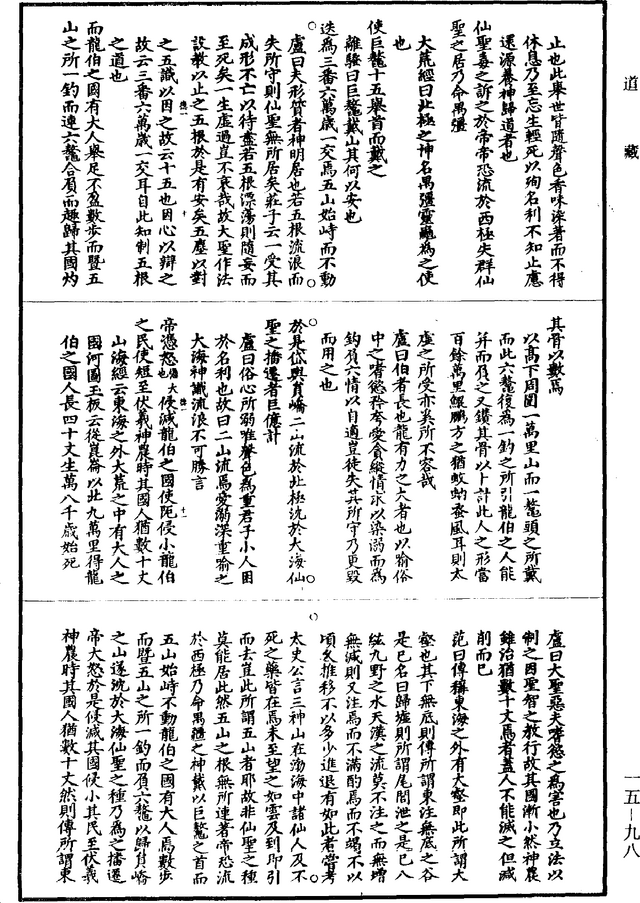 道藏
止也此舉世皆隨聲色香味染著而不得
休息乃至忘生輕死以殉名利不知止應
還源養神歸道者也
仙聖毒之訴之於帝帝恐流於西極失群仙
聖之居乃命禺彊
大荒經曰北極之神名禺彊靈龜為之使
也
使巨鼇十五舉首而戴之
離騷曰巨鼇戴山其何以安也
迭為三番六萬歲一交焉五山始峙而不動
盧曰夫形質者神明居也若五根流浪而
失所守則仙聖無所居矣莊子云一受其
成形不亡以待盡若五根漂蕩則隨妄而
至死矣一生虛過豈不哀哉故大聖作法
設教以止之五根於是有安矣五塵以對
之五識以因之故云十五也因心以辯之
故云三番六萬歲一交耳自此知制五根
之道也
而龍伯之國有大人舉足不盈數步而暨五
山之所一釣而連六鼇合負而趣歸其國灼
其骨以數焉
以高下周圍一萬里山而一鼇頭之所戴
而此六鼇復為一釣之所引龍伯之人能
并而負之又鑽其骨以卜計此人之形當
百餘萬里鯤鵬方之猶蚊蚋蚤虱耳則太
虛之所受亦奚所不容哉
盧曰伯者長也龍有力之大者也以喻俗
中之嗜慾矜夸愛貪縱情求以染溺而為
鈎負六情以自適豈徒失其所守乃更毀
而用之也
於是岱輿員嶠二山流於北極沈於大海仙
聖之播遷者巨億計
盧曰俗心所弱唯聲色為重君子小人困
於名利也故曰二山流焉愛溺深重喻之
大海神識流浪不可勝言
帝憑怒憑大也侵減龍伯之國使阨侵小龍伯
之民使短至伏羲神農時其國人猶數十丈
山海經云東海之外大荒之中有大人之
國河圖玉板云從崑崙以北九萬里得龍
伯之國人長四十丈生萬八千歲始死
盧曰大聖惡夫嗜慾之為害也乃立法以
制之因聖智之教行故其國漸小然神農
雖治猶數十丈焉者蓋人不能滅之但減
削而已
范曰傳稱東海之外有大壑即此所謂大
壑也其下無底則傳所謂東注無底之谷
是已名曰歸墟則所謂尾閭泄之是已八
紘九野之水天漢之流莫不注之而無增
無減則又注焉而不滿酌焉而不竭不以
頃久推移不以多少進退有如此者嘗考
太史公言三神山在渤海中諸仙人及不
死之藥皆在焉未至望之如雲及到即引
而去豈此所謂五山者耶故非仙聖之種
莫能居此然五山之根無所連著帝恐流
於西極乃命禺彊之神戴以巨鼇之首而
五山始峙不動龍伯之國有大人焉數步
而暨五山之所一釣而負六鼇以歸員嶠
之山遂沈於大海仙聖之種乃為之播遷
帝大怒於是侵減其國侵小其民至伏羲
神農時其國人猶數十丈然則傳所謂東
一五—九八